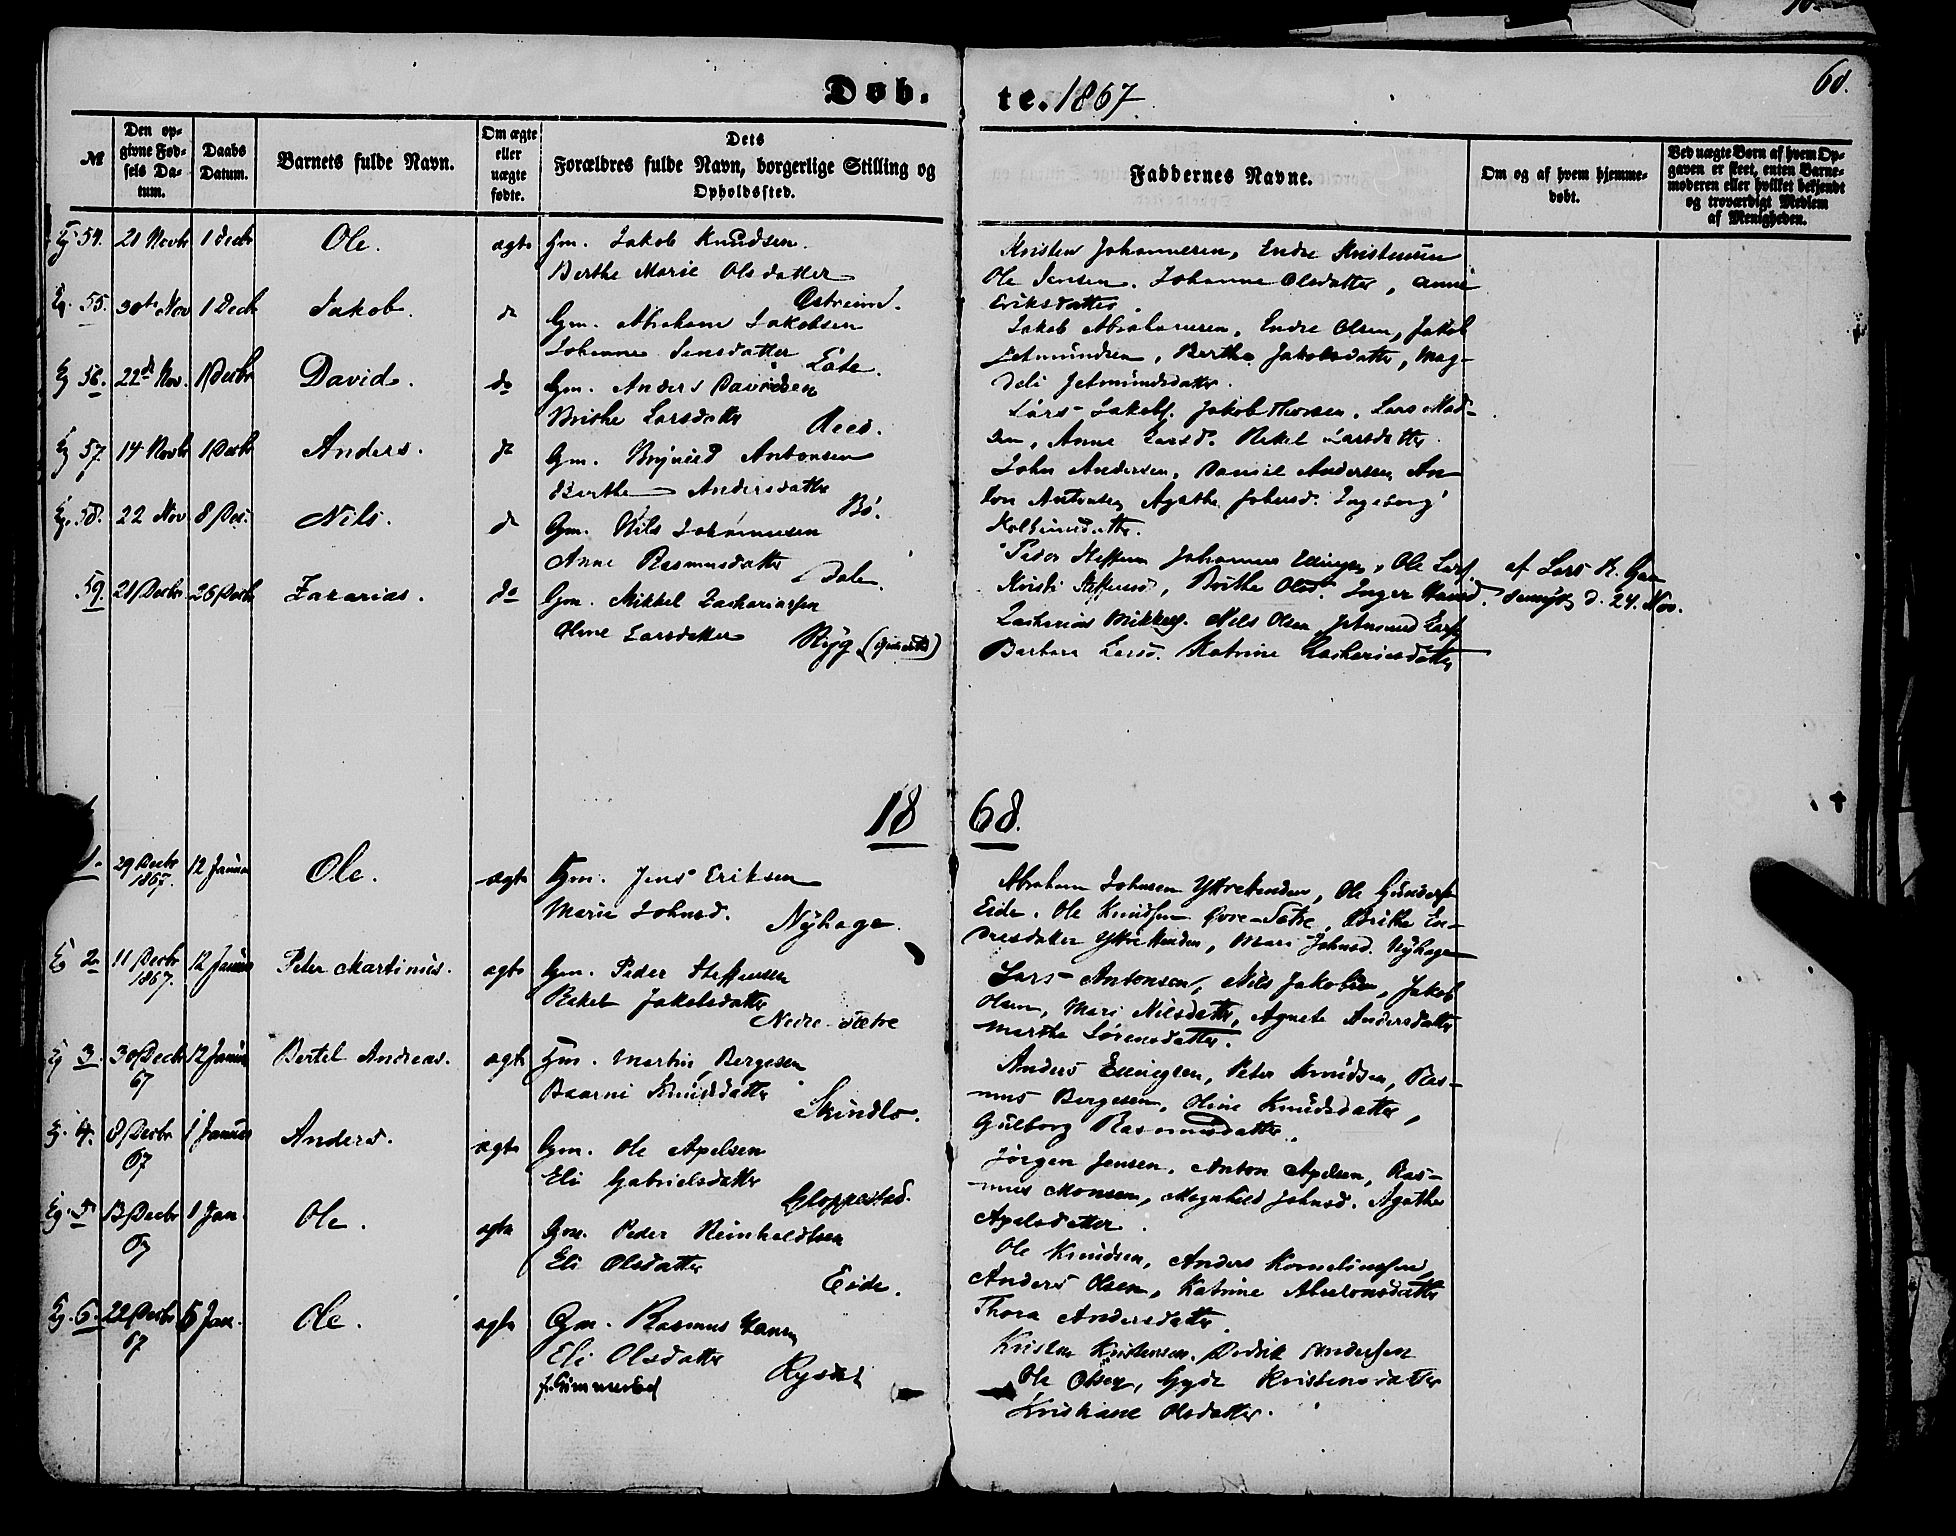 Døb. te. 1867.
68.
№
Den opgivne Fødsels Datum.
Daabs Datum.
Barnets fulde Navn.
Om ægte eller uægte fødte.
Dets Forældres fulde Navn, borgerlige Stilling og Opholdssted.
Faddernes Navne.
Om og af hvem hjemmedøbt.
Ved uægte Børn af hvem Opgaven er skeet, enten Barnemoderen eller hvilket bekjendt og troværdigt Medlem af Menigheden.
Eg. 54. 21 Novbr 1 Decbr Ole. ægte Gm. Jakob Knudsen.
Berthe Marie Olsdatter
Østreim.
Kristen Johannesen, Endre Kristensen
Ole Jensen. Johanne Olsdatter, Anne
Eriksdatter.
Eg. 55. 30te Nov 1 Decb Jakob. do
Gm. Abraham Jakobsen
Johanne Jensdatter
Jakob Abrahamsen, Endre Olsen, Jakob
Jetmundsen, Berthe Jakobsdatter, Mag-
deli Jetmundsdatter.
Eg 56. 22de Nov. 1 Decbr David. do
Gm. Anders Davidsen
Brithe Larsdatter Reed.
Lars Jakobs. Jakob Thorsen. Lars Mad-
sen, Anne Larsd. Rakel Larsdatter
Eg 57. 14 Novbr 1 Decbr Anders. do
Gm. Brynild Antonsen
Berthe Andersdatter
Bø.
John Andersen, Daniel Andersen, An-
ton Antonsen Agathe Johnsd. Ingeborg
Kolbeinsdatter.
Eg. 58. 22 Nov 8 Dec. Nils. do
Gm. Nils Johannesen
Anne Rasmusdatter
Dale.
Peder Steffensen Johannes Ellingsen, Ole Lars.
Kristi Steffensd, Brithe Olsd. Inger Hansd.
af Lars R.
d. 24. Nov.
59. 21 Decbr 26 Decbr Zakarias. do
Gm. Mikkel Zachariassen
Oline Larsdatter Ryg (Gimmestad)
Zacharias Mikkels. Nils Olsen Jetmund Lars.
Barbara Larsd. Katrine Zachariasdatter
18 68.
1. 29 Decbr 1867. 12 Januar Ole. ægte
Gm. Jens Eriksen
Marie Johnsd. Nyhage.
Abraham Johnsen Ytrehenden, Ole Gunders.
Eide. Ole Knudsen Øvre-Sætre, Brithe En-
dresdatter Ytrehenden, Mari Johnsd. Nyhage
Eg 2. 11 Decbr 1867. 12 Januar Peter Martinus. ægte
Gm. Peder Steffensen
Rakel Jakobsdatter
Nedre Sætre
Lars Antonsen, Nils Jakobsen, Jakob
Olsen, Mari Nilsdatter, Agnete Andersdatter
Marthe Sørensdatter.
Eg 3. 30 Decb 67 12 Januar Bertel Andreas. ægte
Gm. Martin Bergesen
Knudsdatter
Skindlo.
Anders Ellingsen, Peter Knudsen, Ras-
mus Bergesen, Oline Knudsdatter,
Gulborg Rasmusdatter.
Eg. 4. 8 Decbr 67 1 Januar Anders. ægte
Gm. Ole Apelsen
Eli Gabrielsdatter
Gloppestad.
Jørgen Jensen, Anton Apelsen, Ras-
mus Monsen, Magnhild Johnsd. Agathe
Apelsdatter.
Eg. 5 13 Decbr 67 1 Jan. Ole. ægte
Gm. Peder Reinholdtsen
Eli Olsdatter
Eide.
Ole Knudsen, Anders Korneliussen,
Anders Olsen, Katrine Absalonsdatter
Thora Andersdatter.
Eg. 6. 22 Decbr 67 6 Jan. Ole. ægte
Gm. Rasmus Hansen
Eli Olsdatter
f. Gimmestad
Kristen Kristensen. Didrik Andersen
Ole Olsen, Gyde Kristensdatter
Kristiane Olsdatter.